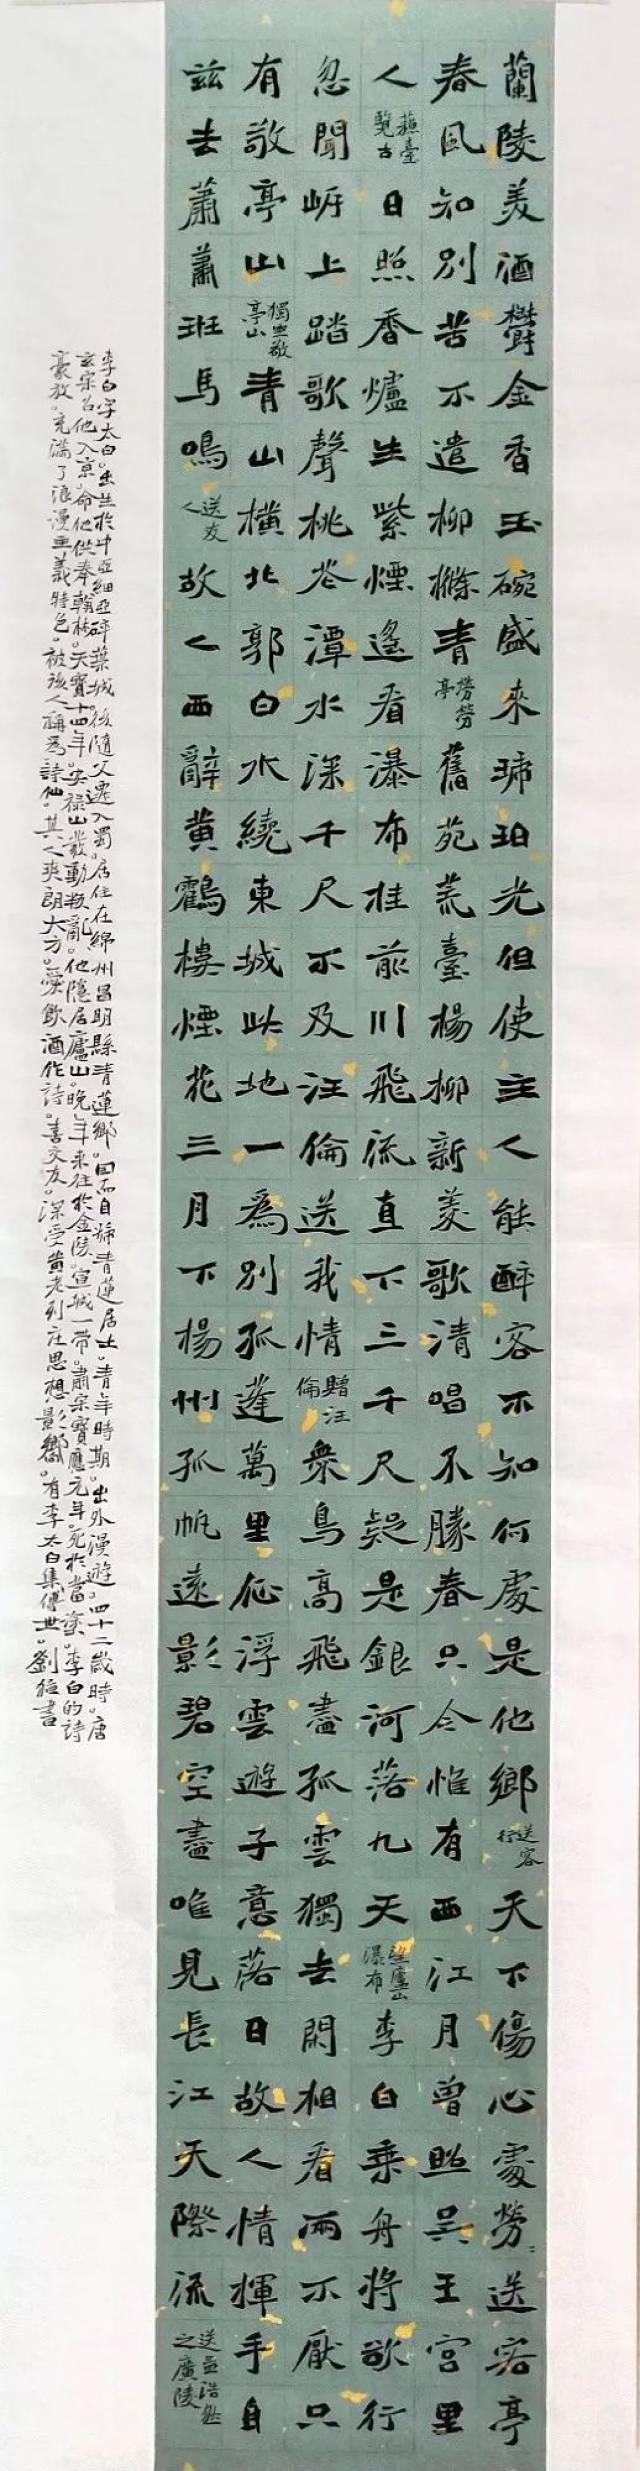 蘭陵美酒鬱金香玉碗盛來琥珀光但使主人能醉客不知何處是他鄉送客行天下傷心處勞〻送客亭
春風知別苦不遣柳條青勞勞亭舊苑荒臺楊柳新菱歌清唱不勝春只今惟有西江月曾照吳王宮里
人蘇臺覽古日照香爐生紫煙遙看瀑布挂前川飛流直下三千尺疑是銀河落九天望廬山瀑布李白乘舟將欲行
忽聞岸上踏歌聲桃花潭水深千尺不及汪倫送我情贈汪倫衆鳥高飛盡孤雲獨去閑相看兩不厭只
有敬亭山獨坐敬亭山青山橫北郭白水繞東城此地一爲別孤蓬萬里征浮雲遊子意落日故人情揮手自
茲去蕭蕭班馬鳴送友人故人西辭黃鶴樓煙花三月下楊州孤帆遠影碧空盡唯見長江天際流送孟浩然之廣陵
李白字太白。出生於中亞細亞碎葉城。後隨父遷入蜀。居住在綿州昌明縣青蓮鄉。因而自號青蓮居士。青年時期。出外漫遊。四十二歲時。唐
玄宗召他入京。命他供奉翰林。天寶十四年。安祿山發動叛亂。他隱居廬山。晚年來往於金陵。宣城一帶。肅宗寶應元年。死於當塗。李白的詩
豪放。充滿了浪漫主義特色。被後人稱爲詩仙。其人爽朗大方。愛飲酒作詩。喜交友。深受黃老列庄思想影響。有李太白集傳世。劉